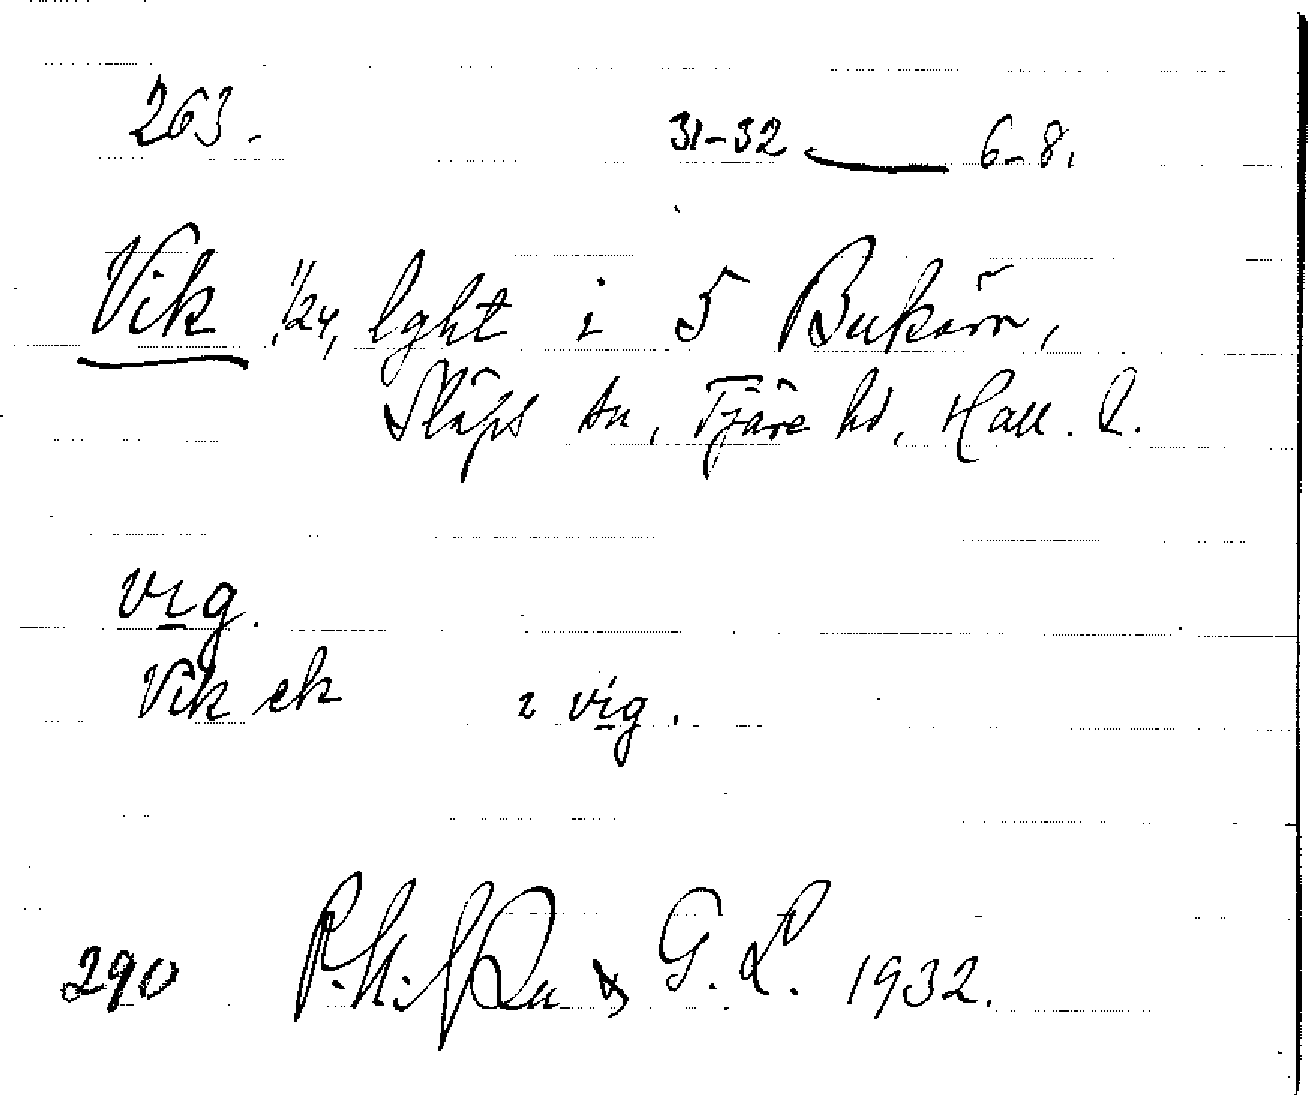 263. 31-32 — 6-8.
Vik 1/24, lght i 5 Bukärr,
Släps sn, Fjäre hd, Hall. l.
vig.
Vik ek i vig.
290 G. L. 1932.